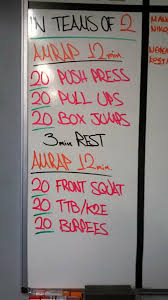 IN TEAMS OF 2
AMRAP 12min
20 PUSH PRESS
20 PULL UPS
20 BOX JUMPS
3min REST
AMRAP 12min
20 FRONT SQUAT
20 TTB/K2E
20 BURPEES